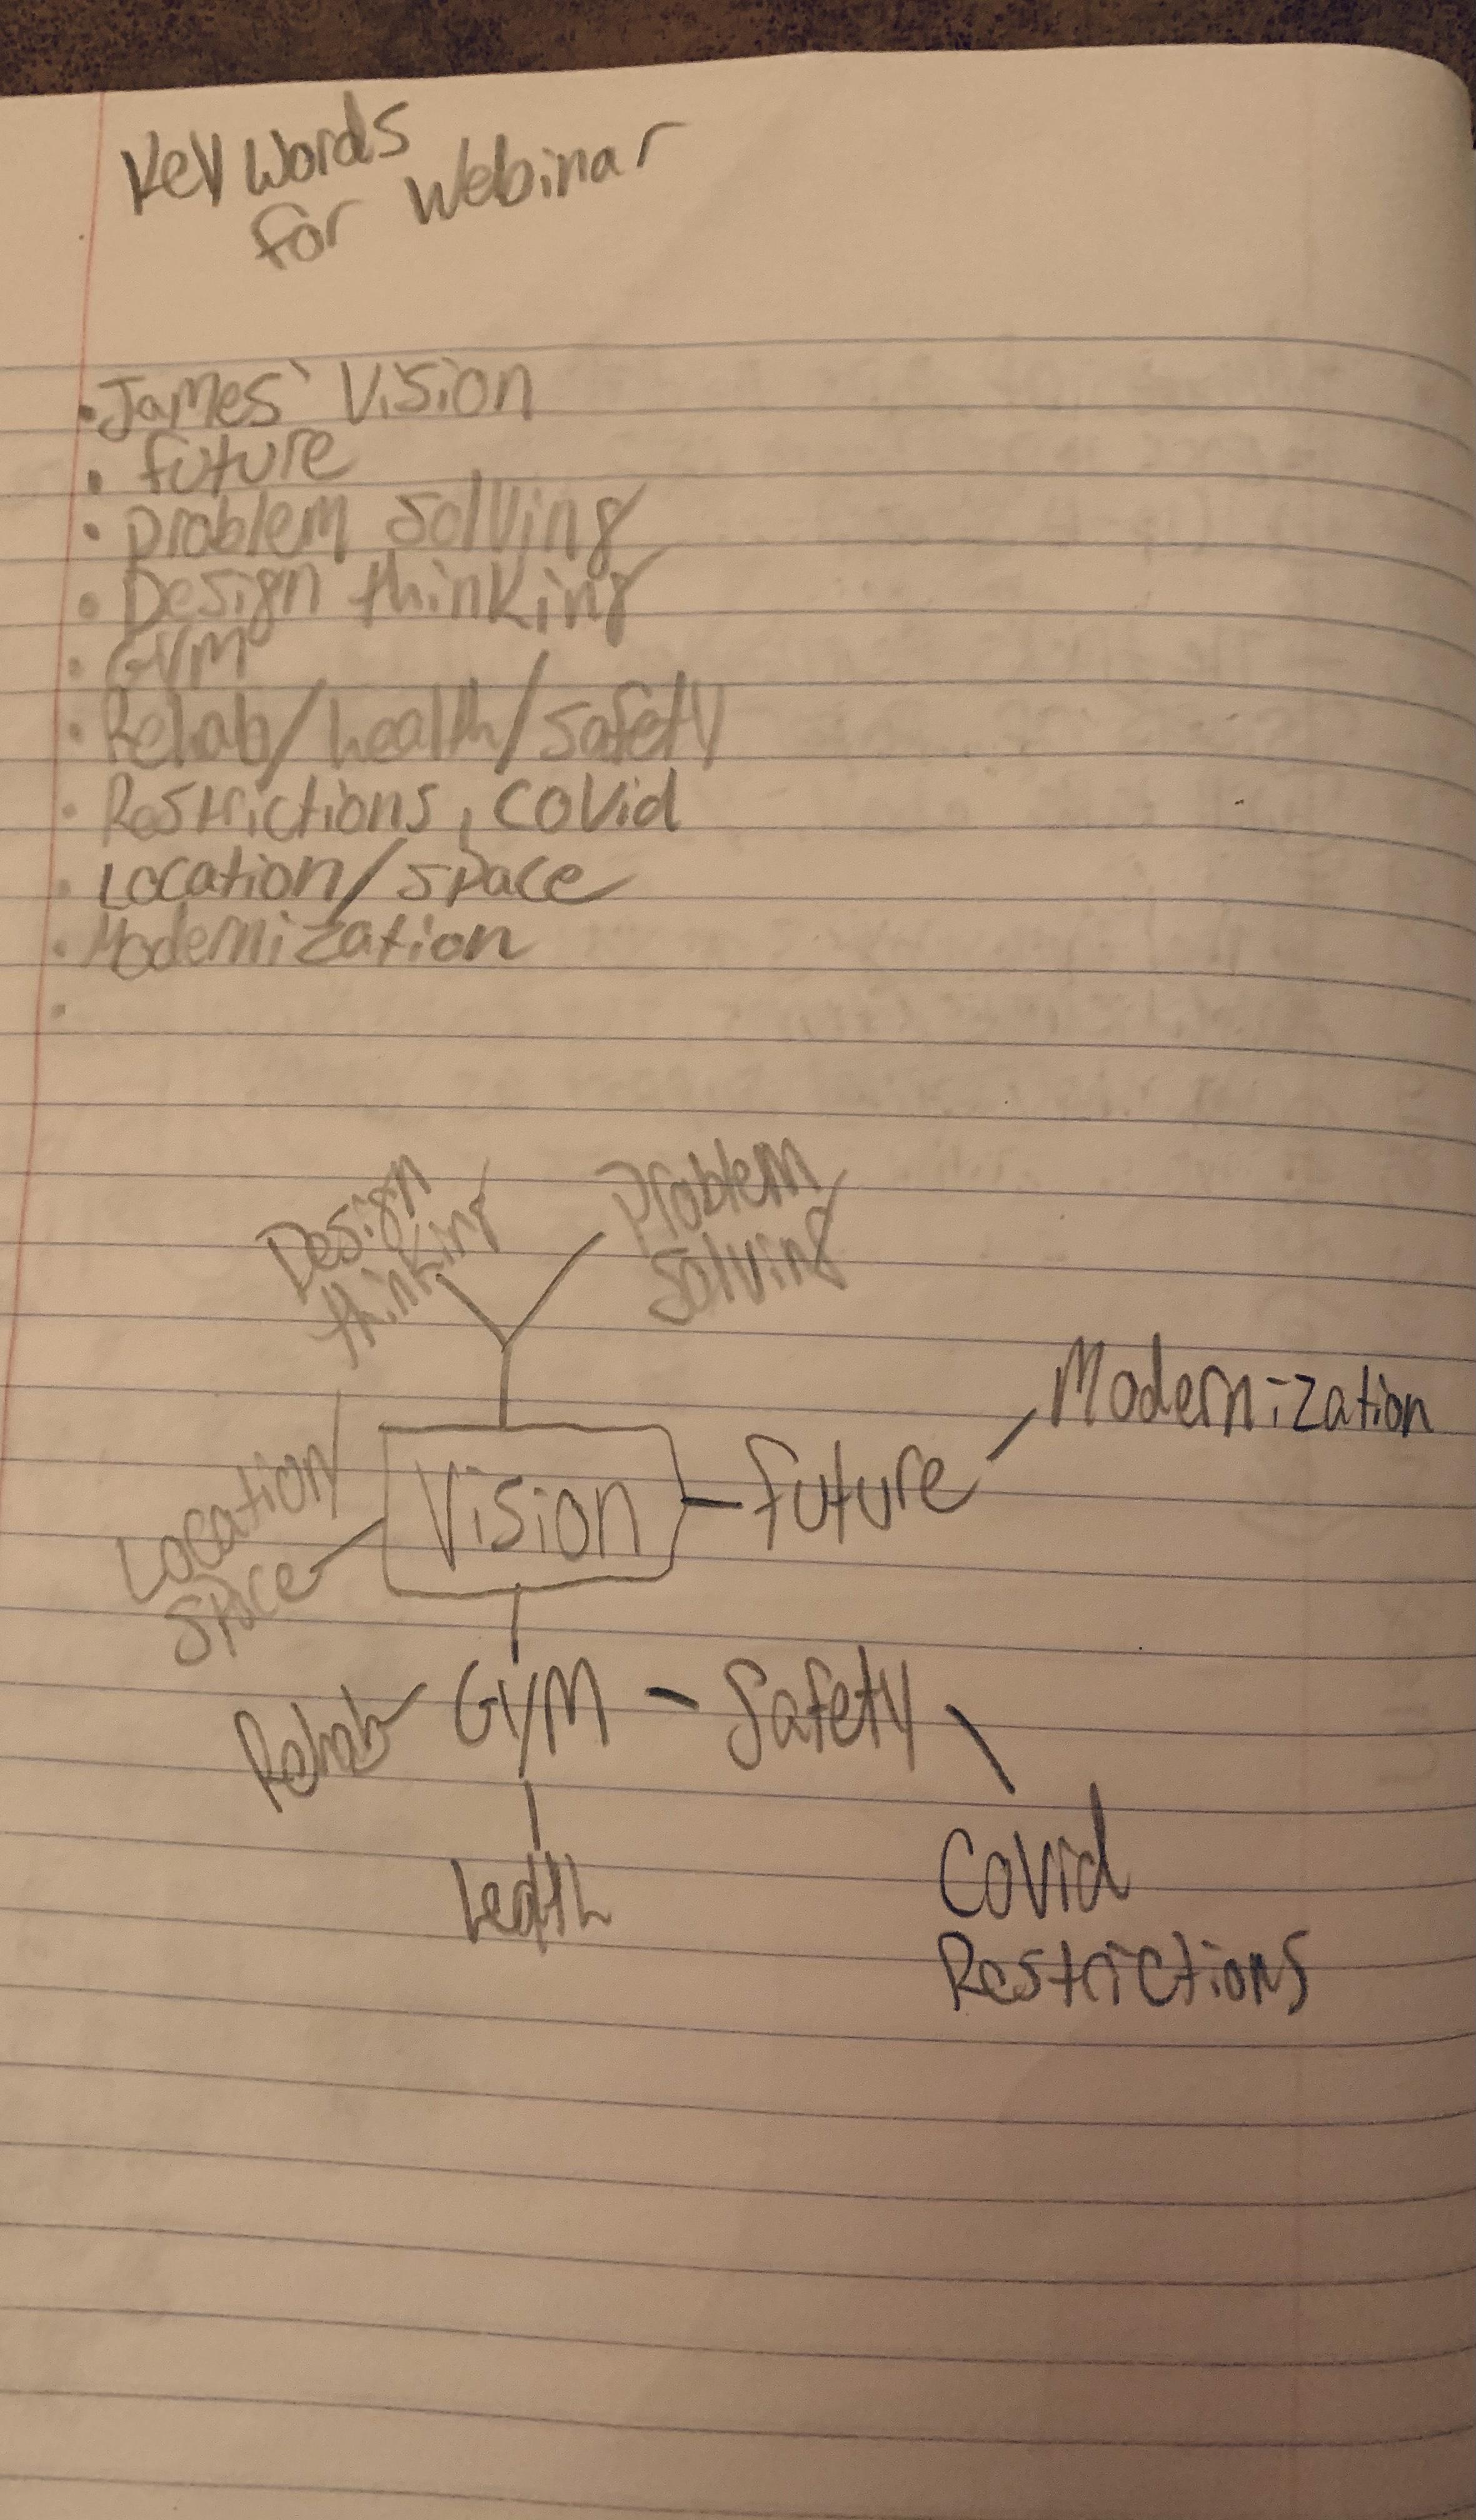 Key Words
for Webinar
• James' Vision
• future
• problem solving
• Design thinking
• Gym
• Rehab/health/safety
• Restrictions, covid
• Location/space
• Modernization
•
Design
thinking
Problem
Solving
Modernization
Vision
future
Location/
Space
Rehab
Gym
Safety
Covid
Restrictions